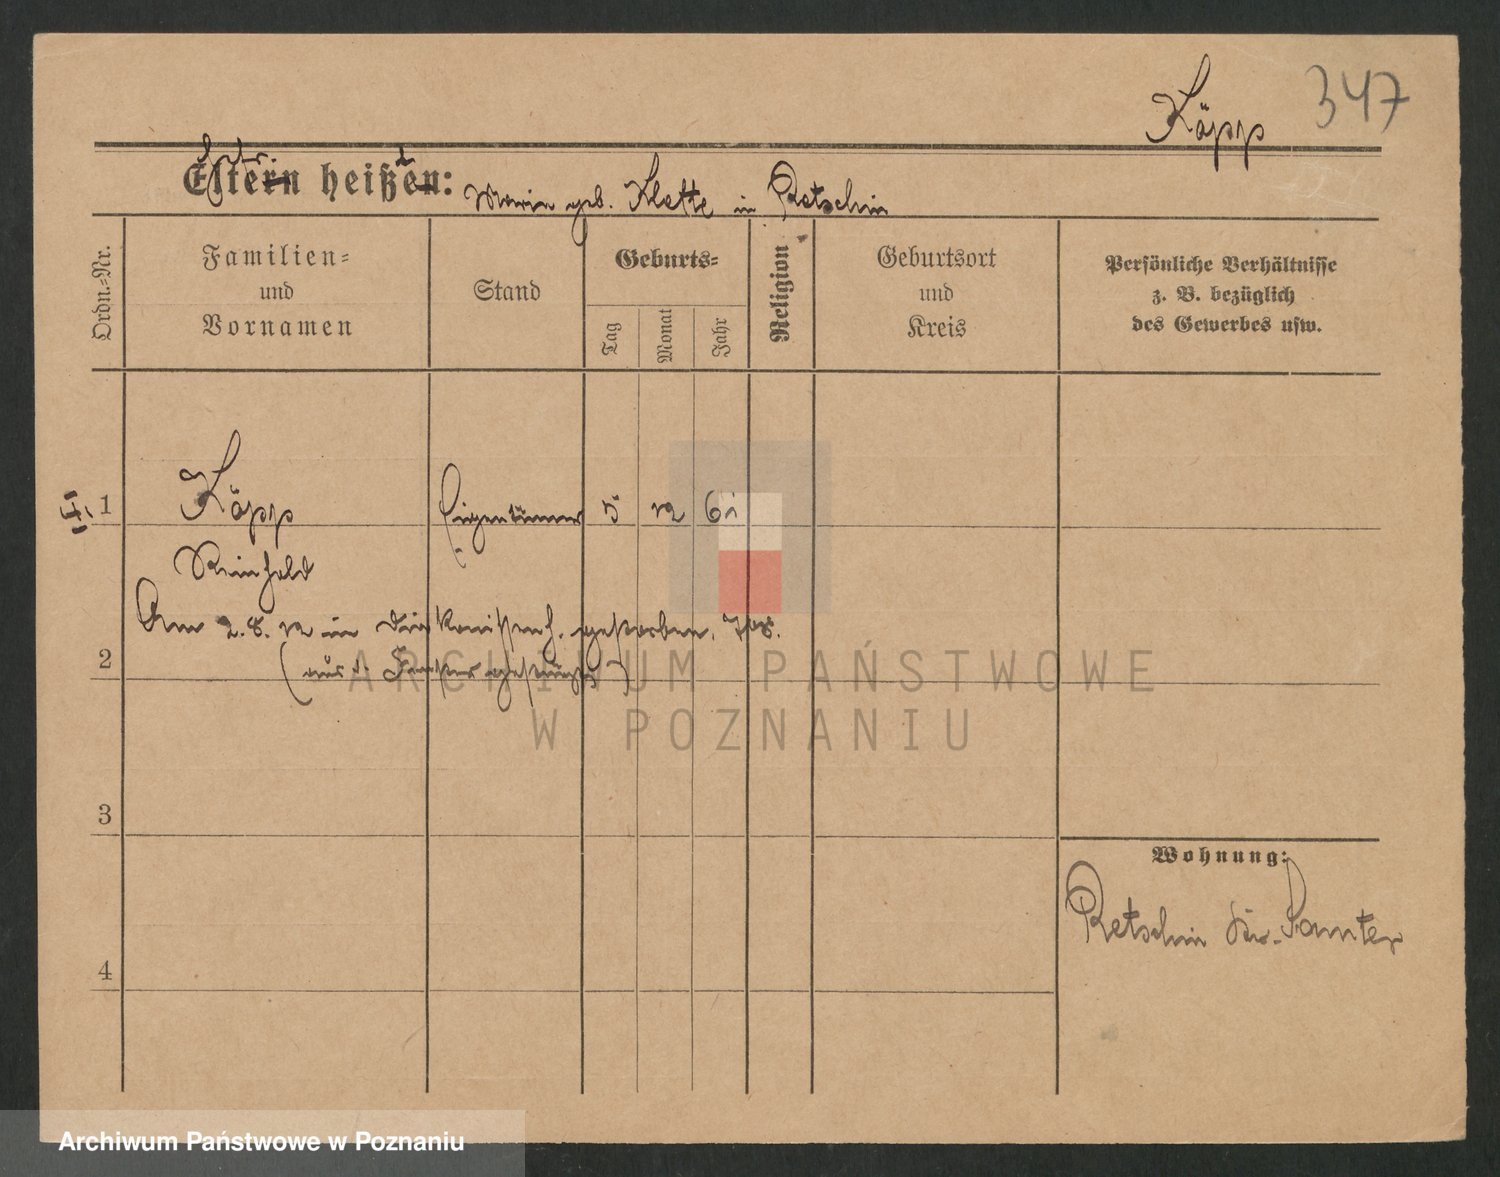 Käpp 347
Eltern heißen:
Maria geb. Klatte in Retschin
Ordn.-Nr.
Familien-
und
Vornamen
Stand
Geburts-
Tag
Monat
Jahr
Religion
Geburtsort
und
Kreis
Persönliche Verhältnisse
z. B. bezüglich
des Gewerbes usw.
1 Käpp Eigentümer 5 12
Reinhold
Am 2.8.12 im Diakonissenh. gestorben,
2
(aus d. Fenster gestürzt)
ARCHIWUM PAŃSTWOWE
W POZNANIU
3
Wohnung:
Retschin Kr. Samter
4
Archiwum Państwowe w Poznaniu